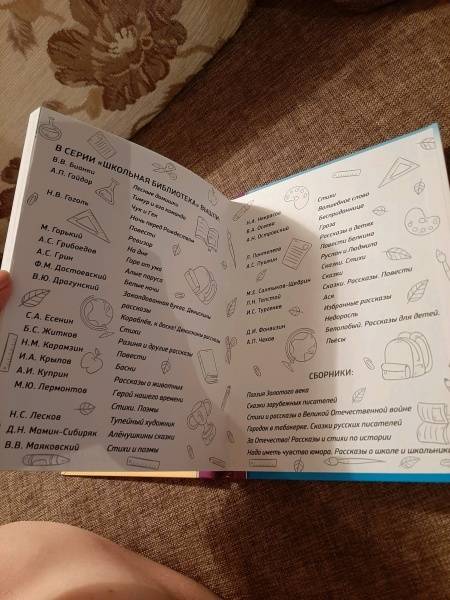 В СЕРИИ «ШКОЛЬНАЯ БИБЛИОТЕКА» ВЫШЛИ:
В.В. Бианки Лесные домишки
А.П. Гайдар Тимур и его команда
Чук и Гек
Н.В. Гоголь Ночь перед Рождеством
Повести
Ревизор
М. Горький На дне
А.С. Грибоедов Горе от ума
А.С. Грин Алые паруса
Ф.М. Достоевский Белые ночи
В.Ю. Драгунский Заколдованная буква. Денискины
рассказы
Кораблёв, к доске! Денискины рассказы
С.А. Есенин Стихи
Б.С. Житков Разиня и другие рассказы
Н.М. Карамзин Повести
И.А. Крылов Басни
А.И. Куприн Рассказы о животных
М.Ю. Лермонтов Герой нашего времени
Стихи. Поэмы
Н.С. Лесков Тупейный художник
Д.Н. Мамин-Сибиряк Алёнушкины сказки
В.В. Маяковский Стихи и поэмы
Н.А. Некрасов Стихи
В.А. Осеева Волшебное слово
А.Н. Островский Бесприданница
Гроза
Л. Пантелеев Рассказы о детях
А.С. Пушкин Повести Белкина
Руслан и Людмила
Сказки. Стихи
М.Е. Салтыков-Щедрин Сказки
Л.Н. Толстой Сказки. Рассказы. Повести
И.С. Тургенев Ася
Избранные рассказы
Д.И. Фонвизин Недоросль
А.П. Чехов Белолобый. Рассказы для детей.
Пьесы
СБОРНИКИ:
Поэзия Золотого века
Сказки зарубежных писателей
Стихи и рассказы о Великой Отечественной войне
Городок в табакерке. Сказки русских писателей
За Отечество! Рассказы и стихи по истории
Надо иметь чувство юмора. Рассказы о школе и школьниках